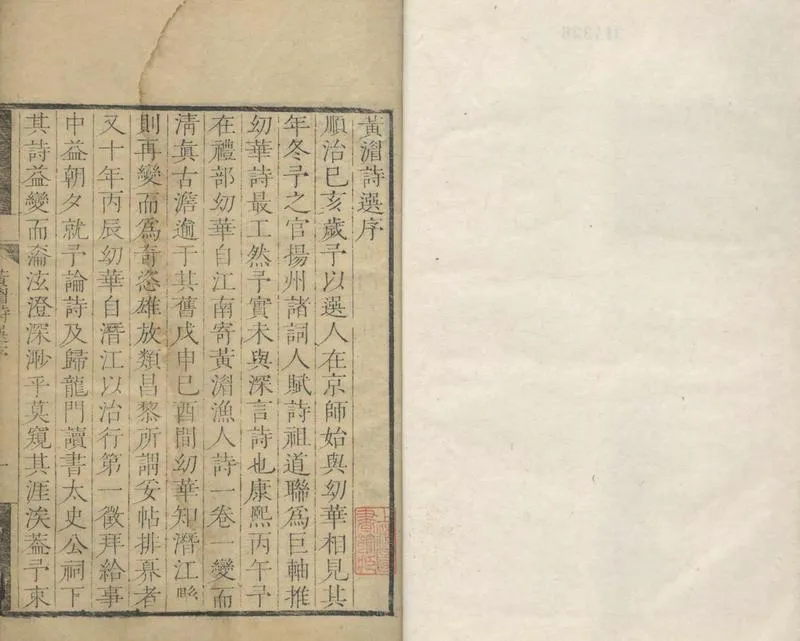 黃湄詩選序
順治己亥歲予以選人在京師始與幼華相見其
年冬予之官揚州諸詞人賦詩祖道聯為巨軸推
幼華詩最工然予實未與深言詩也康熙丙午予
在禮部幼華自江南寄黃湄漁人詩一卷一變而
清真古澹逾于其舊戊申己酉間幼華知潛江縣
則再變而為奇恣雄放類昌黎所謂妥帖排奡者
又十年丙辰幼華自潛江以治行第一徵拜給事
中益朝夕就予論詩及歸龍門讀書太史公祠下
其詩益變而淪泫澄深渺乎莫窺其涯涘葢予束
黃湄詩選序
一